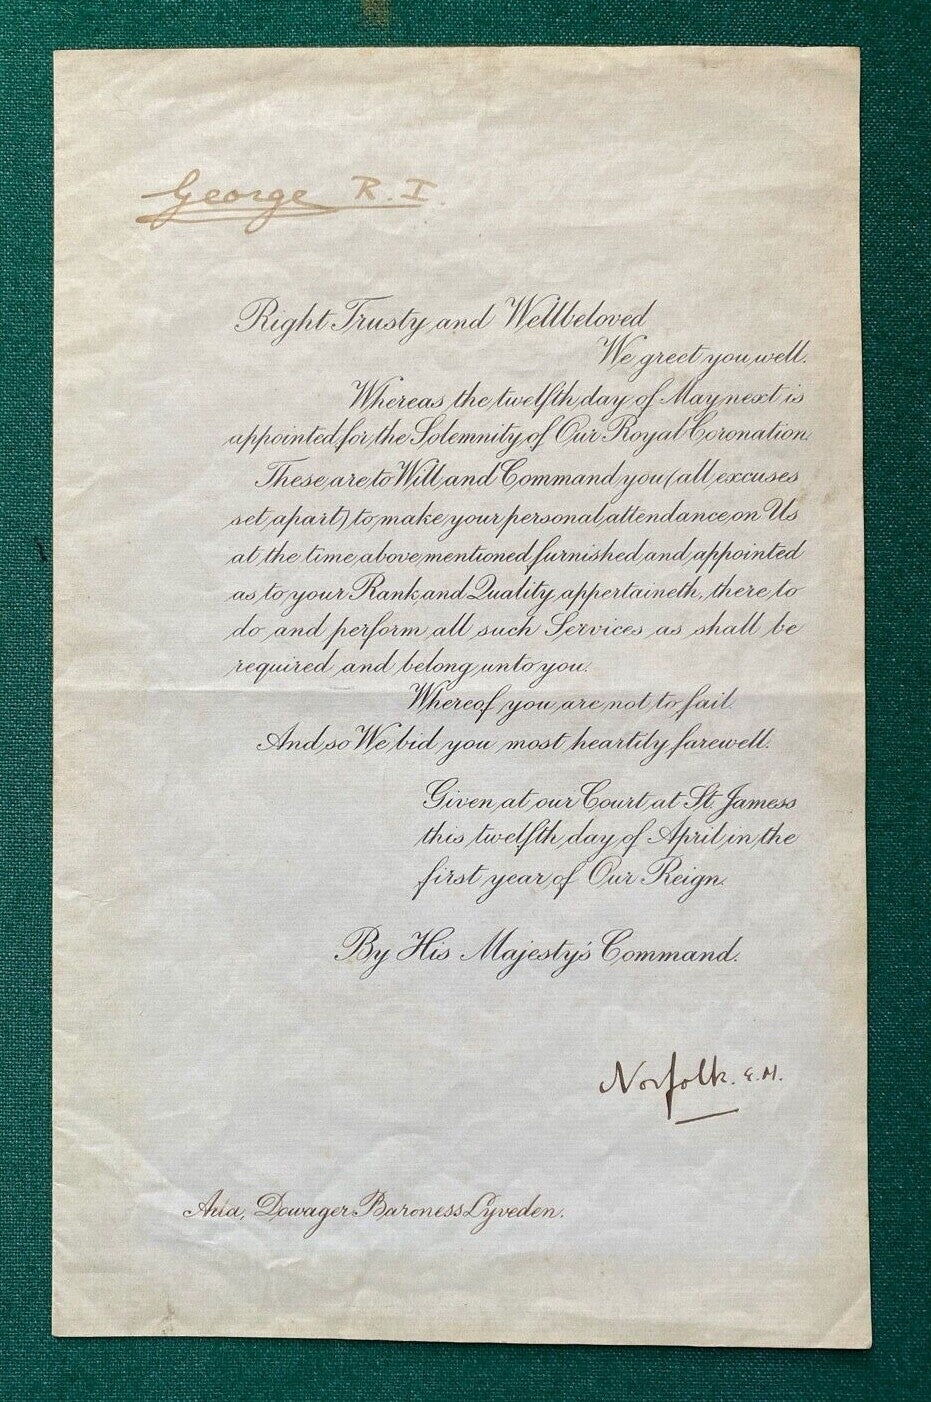 George R.I.
Right Trusty and Wellbeloved
We greet you well.
Whereas the twelfth day of May next is
appointed for the Solemnity of Our Royal Coronation.
These are to Will and Command you (all excuses
set apart) to make your personal attendance on Us
at the time above mentioned furnished and appointed
as to your Rank and Quality appertaineth, there to
do and perform all such Services as shall be
required and belong unto you.
Whereof you are not to fail.
And so We bid you most heartily farewell.
Given at our Court at St. James's
this twelfth day of April in the
first year of Our Reign.
By His Majesty's Command.
Norfolk. E.M.
Dowager Baroness Lyveden.